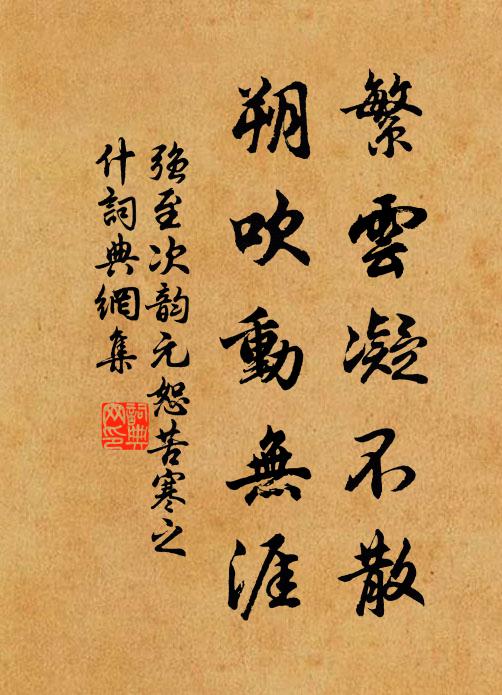 繁雲凝不散
朔吹動無涯
強至次韵元恕苦寒之
什詞典網集
詞典
网印